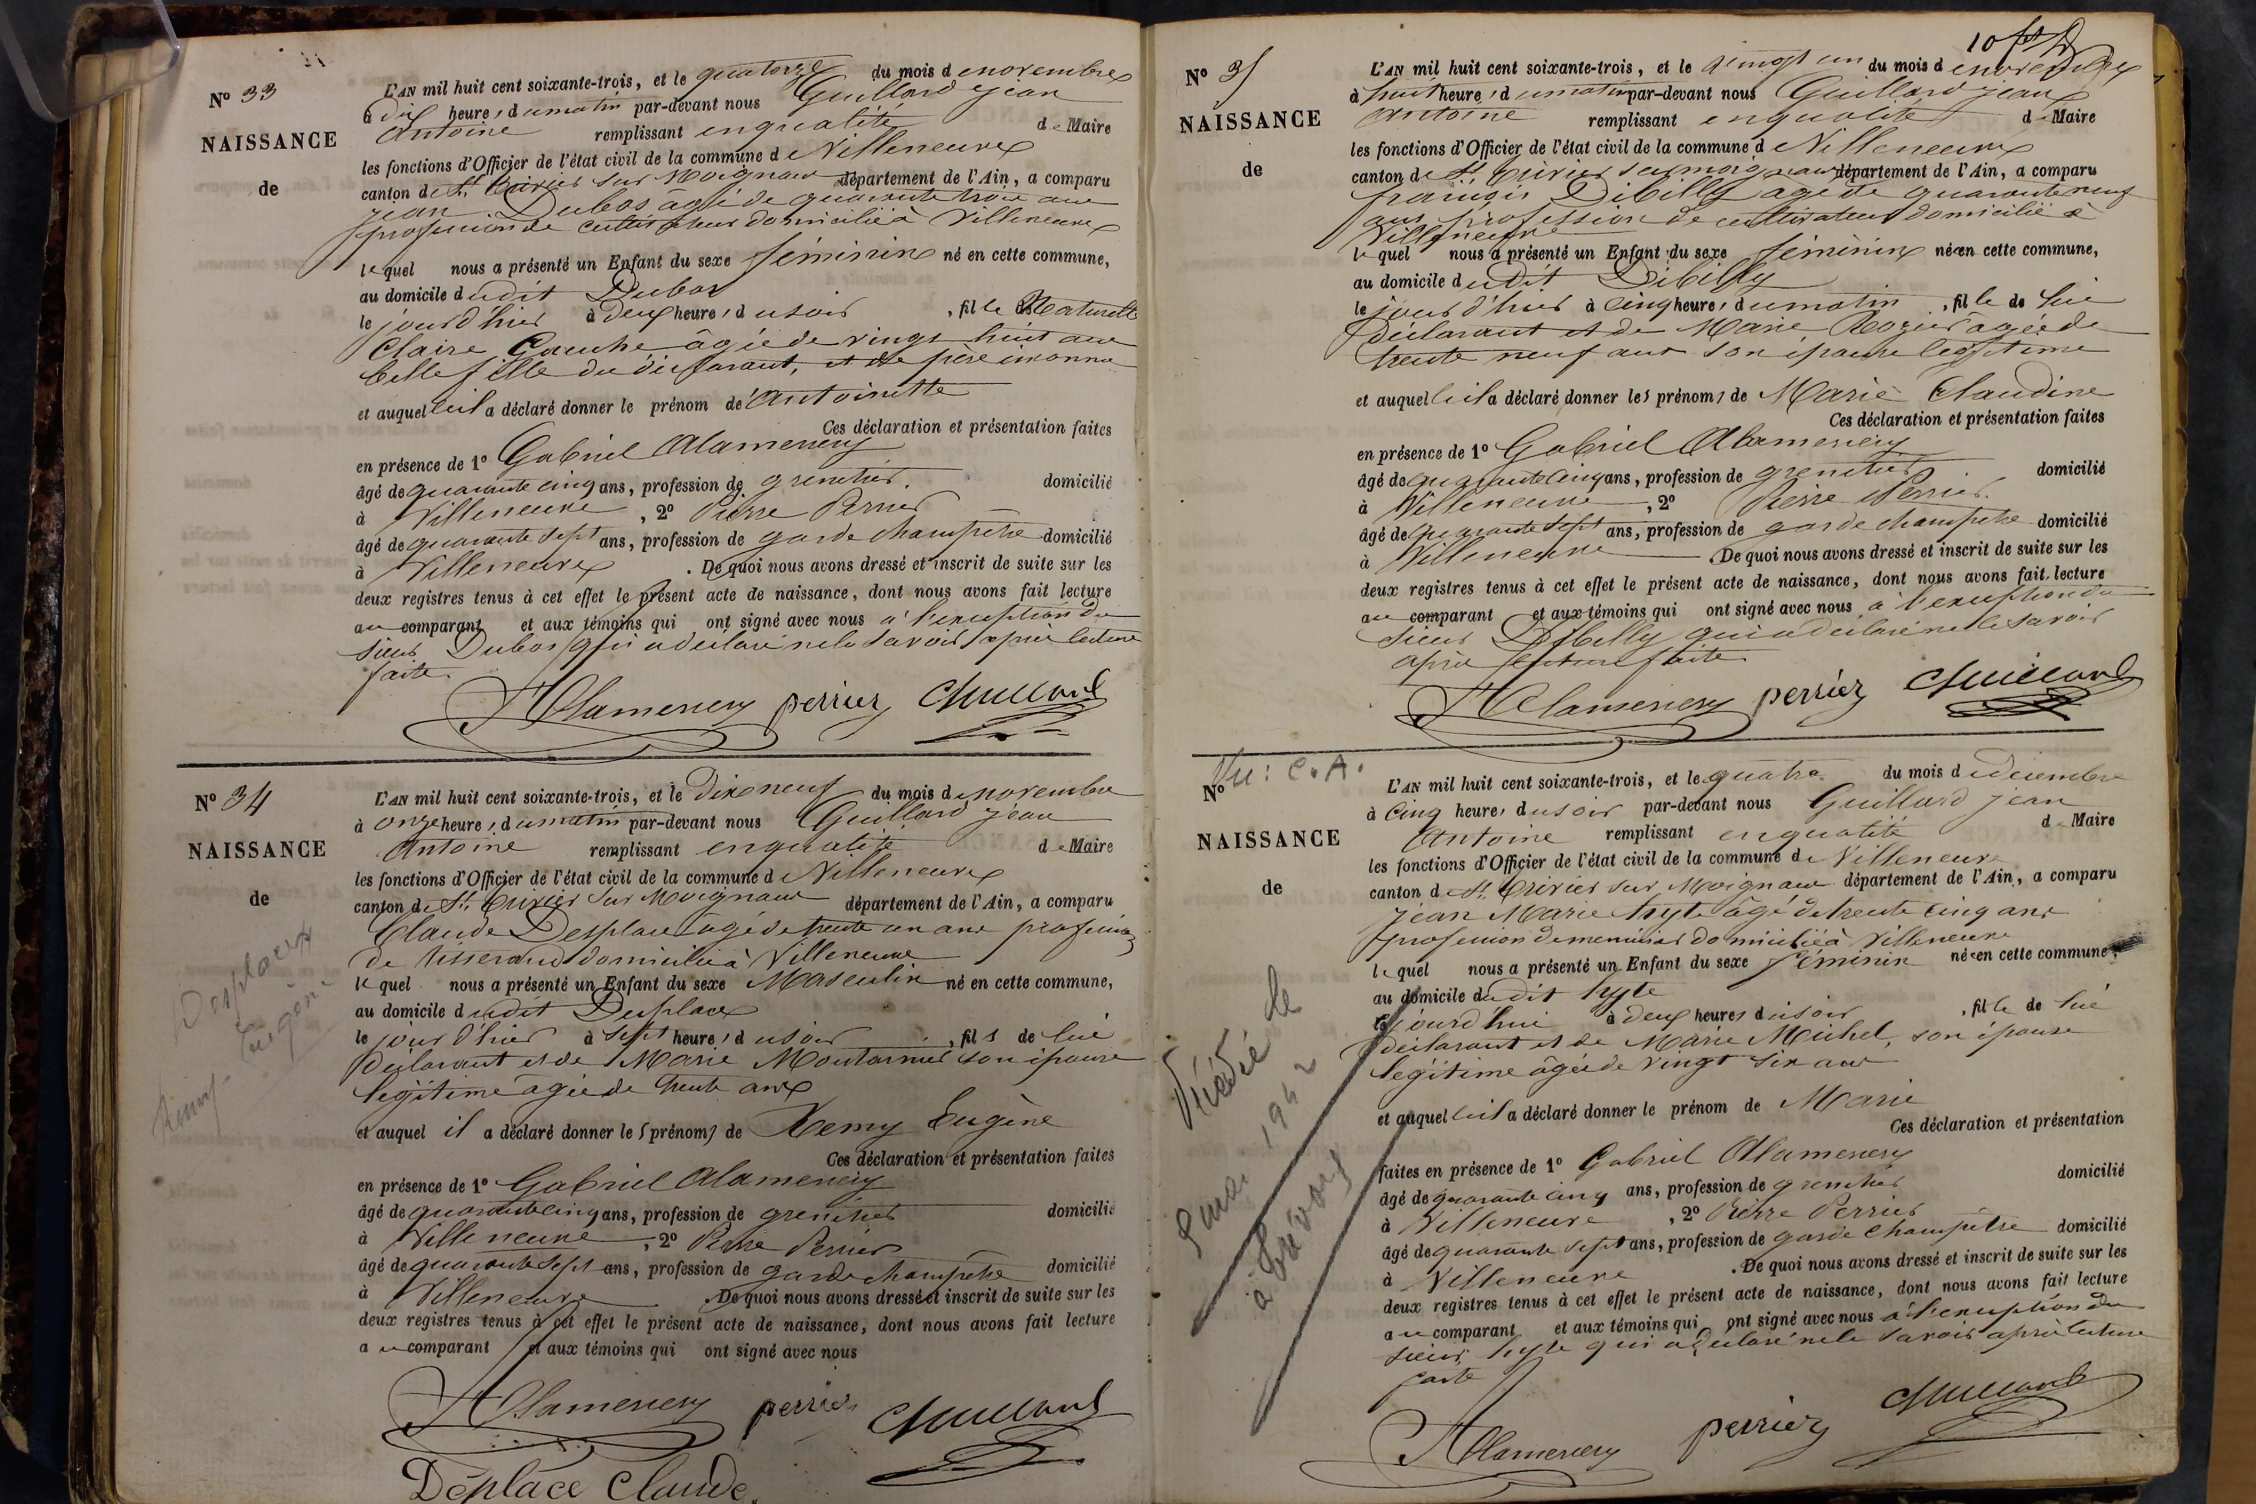 N° 33
NAISSANCE
de
L'AN mil huit cent soixante-trois, et le quatorze du mois de novembre
à dix heures du matin par-devant nous Guillard jean
Antoine remplissant en qualité de Maire
les fonctions d'Officier de l'état civil de la commune de Villeneuve
canton de St Trivier sur Moignans département de l'Ain, a comparu
jean Dubos âgé de quarante trois ans
profession de cultivateur domicilié à Villeneuve
lequel nous a présenté un Enfant du sexe féminin né en cette commune,
au domicile dudit Dubos
le jour d'hier à deux heures du soir, fille Naturelle
Claire Gauche âgée de vingt huit ans
belle fille du déclarant, et de père inconnu
et auquel il a déclaré donner le prénom de Antoinette
Ces déclaration et présentation faites
en présence de 1° Gabriel Alamercery
âgé de quarante cinq ans, profession de grenetier domicilié
à Villeneuve, 2° Pierre Perrier
âgé de quarante sept ans, profession de garde champêtre domicilié
à Villeneuve. De quoi nous avons dressé et inscrit de suite sur les
deux registres tenus à cet effet le présent acte de naissance, dont nous avons fait lecture
au comparant et aux témoins qui ont signé avec nous à l'exception du
sieur Dubos qui a déclaré ne le savoir après lecture
faite.
Alamercery perrier Guillard
N° 34
NAISSANCE
de
Desplaces
Remy-Eugène
L'AN mil huit cent soixante-trois, et le dix neuf du mois de novembre
à onze heures du matin par-devant nous Guillard jean
Antoine remplissant en qualité de Maire
les fonctions d'Officier de l'état civil de la commune de Villeneuve
canton de St Trivier sur Moignans département de l'Ain, a comparu
Claude Desplace âgé de trente un ans profession
de tisserand domicilié à Villeneuve
lequel nous a présenté un Enfant du sexe Masculin né en cette commune,
au domicile dudit Desplaces
le jour d'hier à sept heures du soir, fils de lui
déclarant et de Marie son épouse
légitime âgée de trente ans
et auquel il a déclaré donner les prénoms de Remy Eugène
Ces déclaration et présentation faites
en présence de 1° Gabriel Alamercery
âgé de quarante cinq ans, profession de grenetier domicilié
à Villeneuve, 2° Pierre Perrier
âgé de quarante sept ans, profession de garde champêtre domicilié
à Villeneuve. De quoi nous avons dressé et inscrit de suite sur les
deux registres tenus à cet effet le présent acte de naissance, dont nous avons fait lecture
au comparant et aux témoins qui ont signé avec nous
Alamercery perrier Guillard
Déplace Claude
N° 35
NAISSANCE
de
L'AN mil huit cent soixante-trois, et le vingt un du mois de novembre
à huit heures du matin par-devant nous Guillard jean
Antoine remplissant en qualité de Maire
les fonctions d'Officier de l'état civil de la commune de Villeneuve
canton de St Trivier sur moignans département de l'Ain, a comparu
françois Dibilly âgé de quarante neuf
ans profession de cultivateur domicilié à
Villeneuve
lequel nous a présenté un Enfant du sexe féminin née en cette commune,
au domicile dudit Dibilly
le jour d'hier à cinq heures du matin, fille de lui
déclarant et de Marie Rozier âgée de
trente neuf ans son épouse légitime
et auquel il a déclaré donner les prénoms de Marie Claudine
Ces déclaration et présentation faites
en présence de 1° Gabriel Alamercery
âgé de quarante cinq ans, profession de grenetier domicilié
à Villeneuve, 2° Pierre Perrier
âgé de quarante sept ans, profession de garde champêtre domicilié
à Villeneuve. De quoi nous avons dressé et inscrit de suite sur les
deux registres tenus à cet effet le présent acte de naissance, dont nous avons fait lecture
au comparant et aux témoins qui ont signé avec nous à l'exception du
sieur Dibilly qui a déclaré ne le savoir
après lecture faite
Alamercery perrier Guillard
Vu: C.A.
N°
NAISSANCE
de
Décédée le
5 mai 1942
à Trévoux
L'AN mil huit cent soixante-trois, et le quatre du mois de décembre
à cinq heures du soir par-devant nous Guillard jean
Antoine remplissant en qualité de Maire
les fonctions d'Officier de l'état civil de la commune de Villeneuve
canton de St Trivier sur Moignans département de l'Ain, a comparu
jean Marie hyte âgé de trente cinq ans
profession de menuisier domicilié à Villeneuve
lequel nous a présenté un Enfant du sexe féminin née en cette commune,
au domicile dudit hyte
le jourd'hui à deux heures du soir, fille de lui
déclarant et de Marie Michel, son épouse
légitime âgée de vingt six ans
et auquel il a déclaré donner le prénom de Marie
Ces déclaration et présentation
faites en présence de 1° Gabriel Alamercery domicilié
âgé de quarante cinq ans, profession de grenetier
à Villeneuve, 2° Pierre Perrier
âgé de quarante sept ans, profession de garde champêtre domicilié
à Villeneuve. De quoi nous avons dressé et inscrit de suite sur les
deux registres tenus à cet effet le présent acte de naissance, dont nous avons fait lecture
au comparant et aux témoins qui ont signé avec nous à l'exception du
sieur hyte qui a déclaré ne le savoir après lecture
faite
Alamercery perrier Guillard